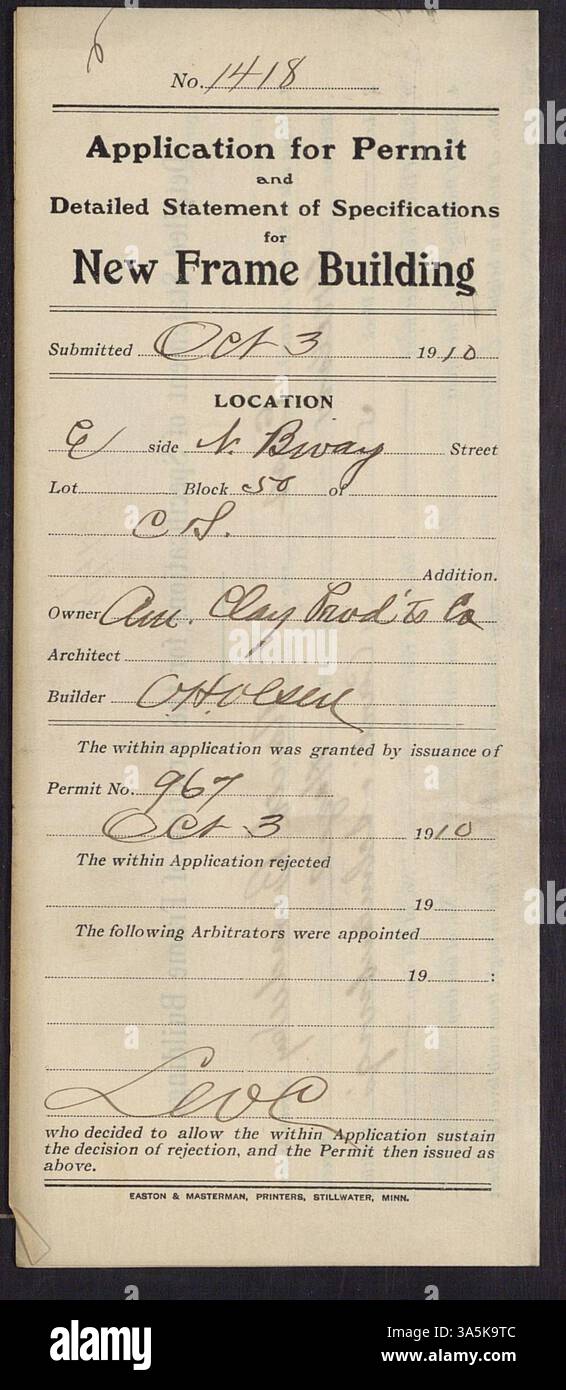 No. 1418
Application for Permit
and
Detailed Statement of Specifications
for
New Frame Building
Submitted Oct 3 1910
LOCATION
E side N. Bway Street
Lot Block 50 of
C S.
Addition.
Owner Am. Clay Prod'ts Co
Architect
Builder O.H. Olsen
The within application was granted by issuance of
Permit No. 967
Oct 3 1910
The within Application rejected
19
The following Arbitrators were appointed
19 :
who decided to allow the within Application sustain
the decision of rejection, and the Permit then issued as
above.
EASTON & MASTERMAN, PRINTERS, STILLWATER, MINN.
alamy
Image ID: 3A5K9TC
www.alamy.com